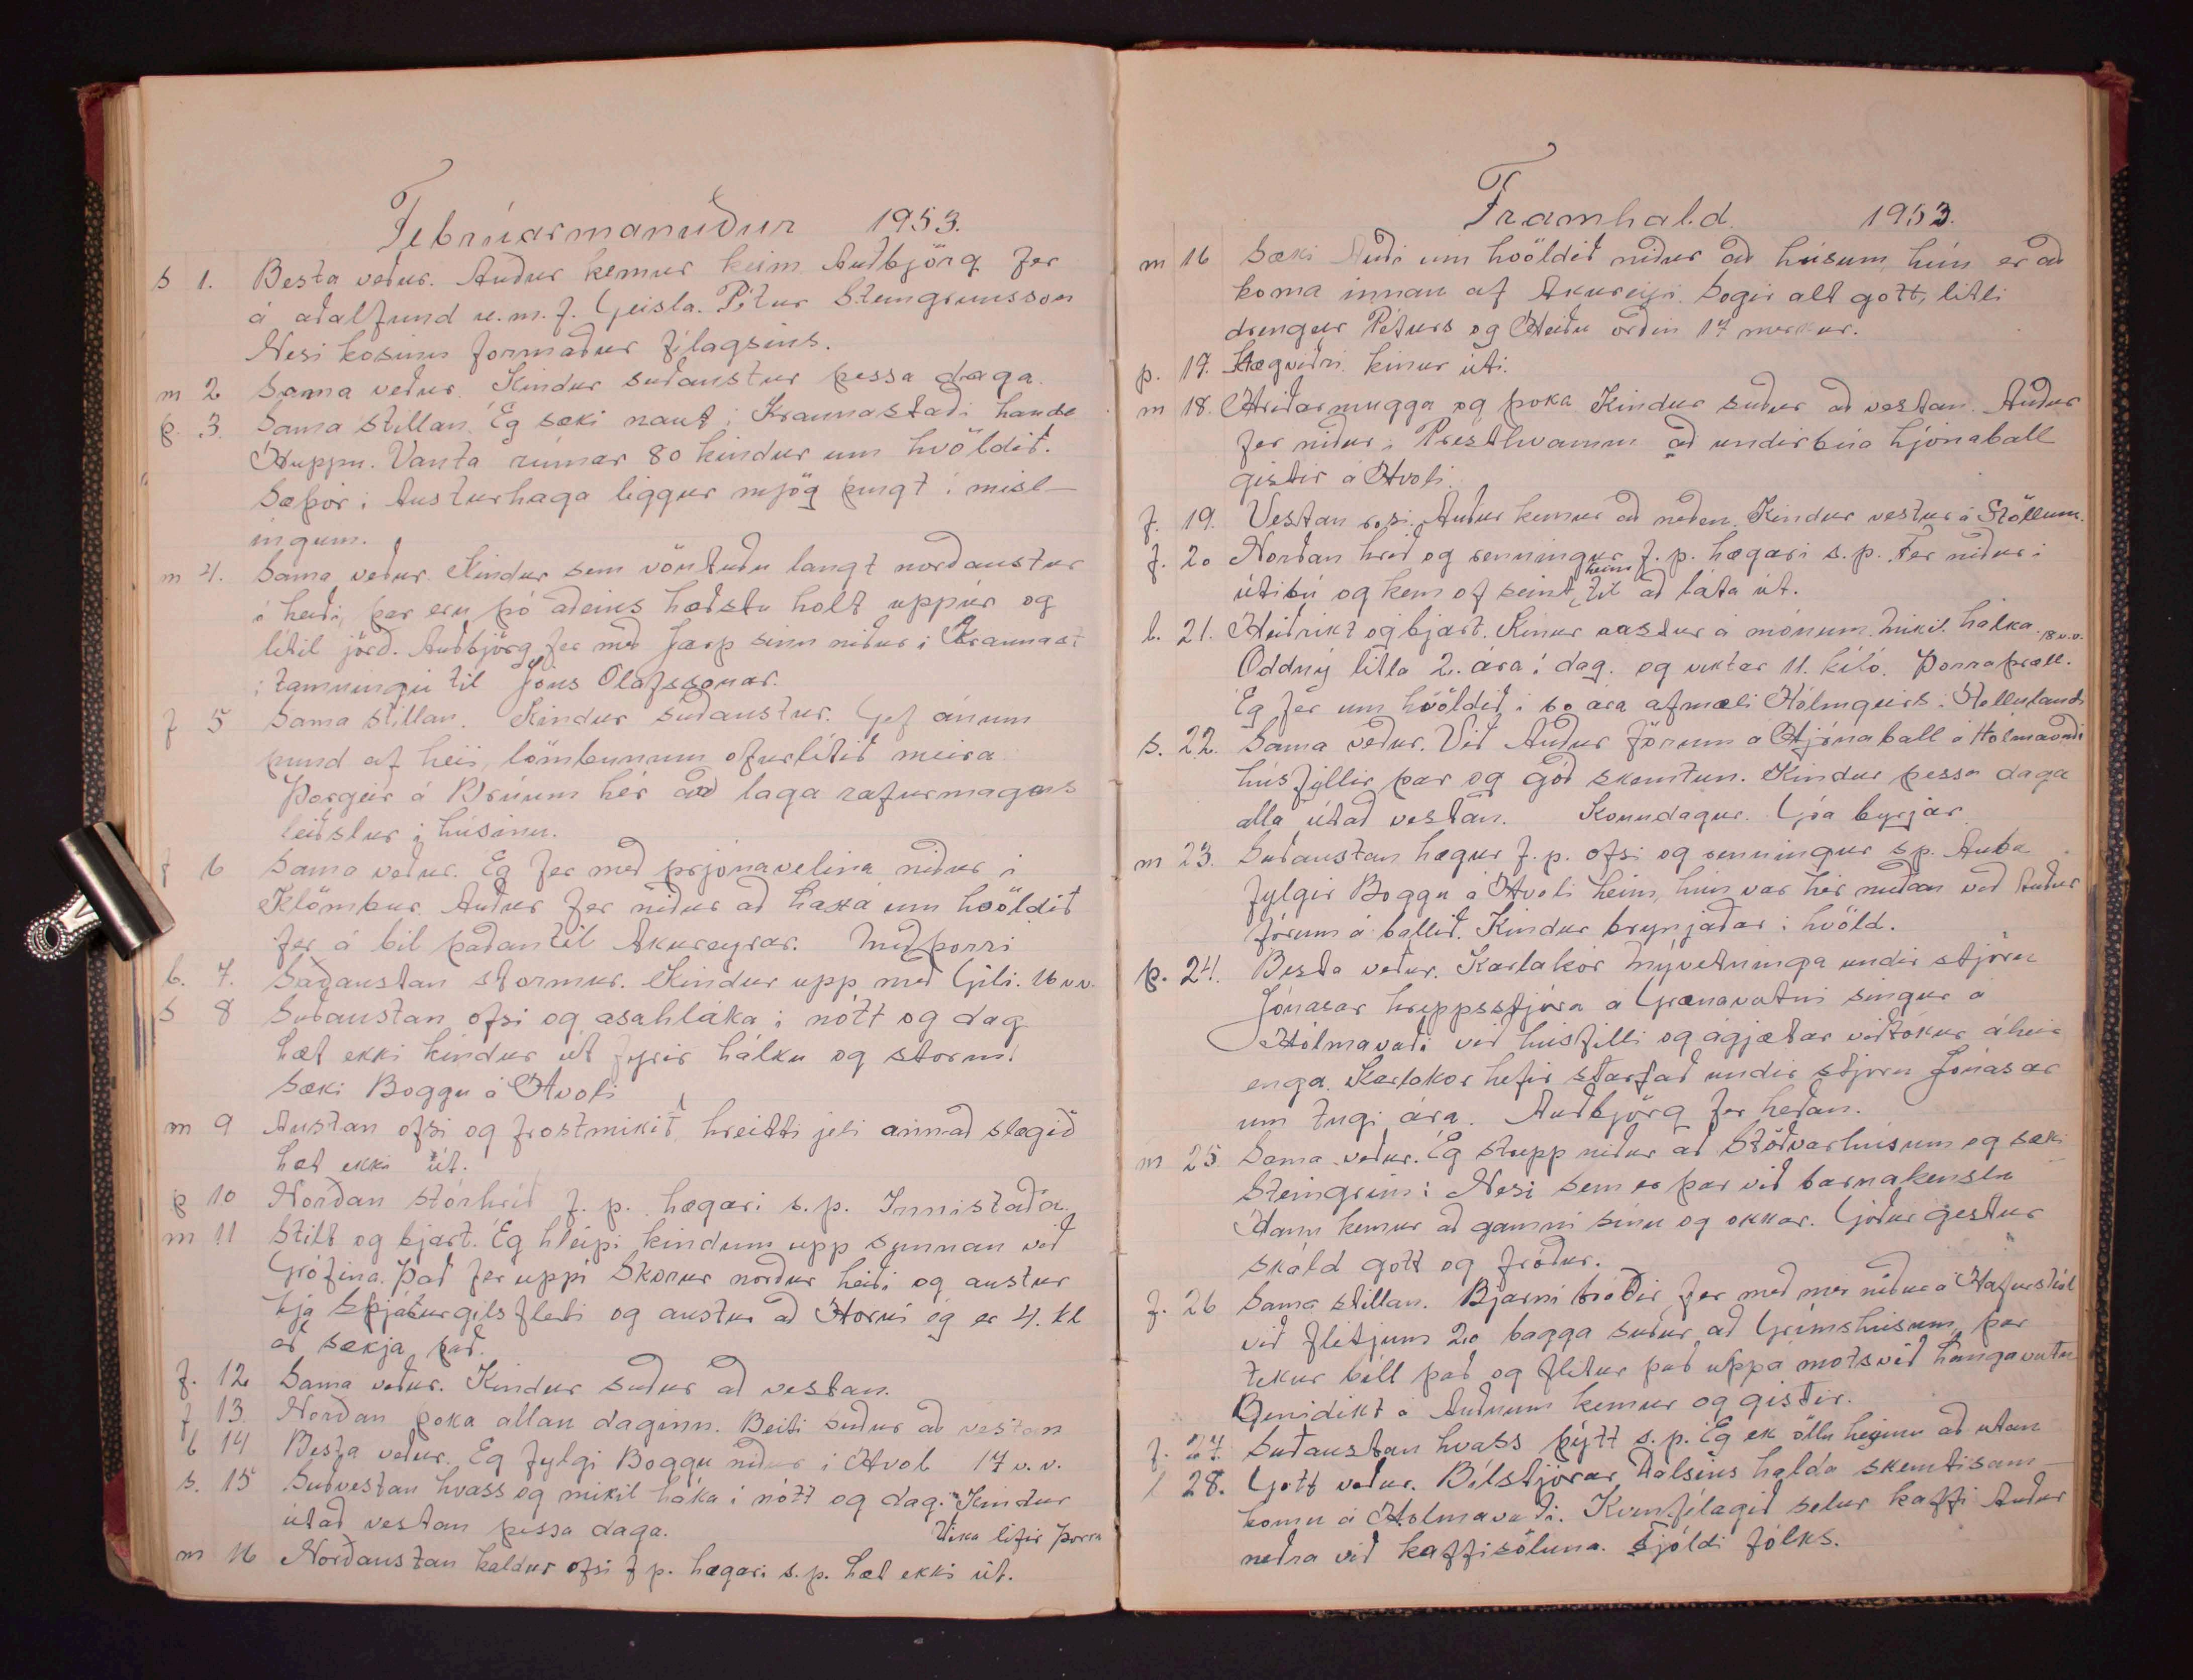 Febrúarmanuður 1953.
s 1. Besta veður. Auður kemur heim Auðbjörg fer
á aðalfund u.m.f. Geisla. Pétur Steingrimsson
Nesi kosinn formaður félagsins.
m 2 Sama veður. Kindur suðaustur þessa daga.
þ. 3. Sama stillan. Ég sæki naut í Kraunastaði handa
Huppu. Vanta rúmar 80 kindur um kvöldið.
Sæþór í Austurhaga liggur mjög þungt í misl-
ingum.
m 4. Sama veður. Kindur sem vöntuðu langt norðaustur
í heiði, þar eru þó aðeins hæðstu holt uppúr og
litil jörð. Auðbjörg fer með Jarp sinn niður í Kraunast
í tamningu til Jóns Olafssonar.
f 5 Sama stillan. Kindur suðaustur. Gef ánum
pund af heii, lömbunum ofurlítið meira
Þorgeir á Brúum hér að laga rafurmagns
leiðslur í húsinu.
f 6 Sama veður. Eg fer með prjónavelina niður í
Klömbur. Auður fer niður að Laxá um kvöldið
fer á bil þaðan til Akureyrar. Miðþorri
l. 7. Suðaustan stormur. Kindur upp með Gili. 16 v.v.
S 8 Suðaustan ofsi og asahláka í nótt og dag
Læt ekki kindur út fyrir hálku og storm.
Sæki Boggu á Hvoli
m 9 Austan ofsi og frostmikið, hreitti jeli annað slagið
Læt ekki út.
þ 10 Norðan stórhríð f.p. hægari s.p. Innistaða.
m 11 Stilt og bjart. Ég hleipi kindum upp sunnan við
Grófina. Það fer uppí Skorur norður heiði og austur
hjá Spjóturgilsfleti og austur að Horni ég er 4. kl
að sækja það.
f. 12 Sama veður. Kindur suður að vestan.
f 13. Norðan þoka allan daginn. Beiti suður að vestan
l 14 Besta veður. Eg fylgi Boggu niður í Hvol 17 v.v.
s. 15 Suðvestan hvass og mikil hláka í nótt og dag. Kindur
útað vestan þessa daga. Vika lifir Þorra
m 16 Norðaustan kaldur ofsi f p. hægari s.p. Læt ekki út.
Framhald. 1953.
m 16 Sæki Auði um kvöldið niður að húsum, hún er að
koma innan af Akureiri. Segir alt gott, litli
drengur Péturs og Heiðu orðin 17 merkur.
þ. 17. Hægviðri. kinur úti.
m 18. Hriðarmugga og þoka Kindur suður að vestan. Auður
fer niður í Presthvamm að undirbúa hjónaball
gistir á Hvoli.
f. 19. Vestan rosi. Auður kemur að neðan. Kindur vestur á Stöllum.
f. 20 Norðan hrið og renningur f.p. hægari s.p. Fer niður í
útibú og kem of seint heim til að láta út.
l. 21. Heiðrikt og bjart. Kinur austur á mónum. Mikil hálka. 18 v.v.
Oddný litla 2. ára í dag. og viktar 11. kíló. Þorraþræll.
Ég fer um kvöldið í 60 ára afmæli Hólmgeirs í Hellulandi
s. 22. Sama veður. Við Auður förum á Hjónaball á Hólmavaði
húsfyllir þar og góð skemtun. Kindur þessa daga
alla útað vestan. Konudagur. Góa byrjar
m 23. Suðaustan hægur f.p. ofsi og renningur s p. Auba
fylgir Boggu á Hvoli heim, hún var hér meðan við Auður
fórum á ballið. Kindur brynjaðar í kvöld.
þ. 24. Besta veður. Karlakór Mývetninga undir stjórn
Jónasar hreppsstjóra á Grænavatni singur á
Hólmavaði við húsfilli og ágjætar viðtökur áheir
enga. Karlakor hefir starfað undir stjorn Jónasar
um tugi ára. Auðbjörg fer heðan.
m 25. Sama veður. Ég skrepp niður að Stöðvarhúsum og sæki
Steingrim í Nesi sem er þar við barnakenslu
Hann kemur að gamni sínu og okkar. Góður gestur
skáld gott og fróður.
f. 26 Sama stillan. Bjarni bróðir fer með mer niður á Hafurstól
við flitjum 20 bagga suður að Grimshúsum, þar
tekur bíll það og flitur það uppá motsvið Langavatn
Benidikt á Auðnum kemur og gistir.
f. 27. Suðaustan hvass þýtt s.p. Ég ek öllu heyinu að utan
l 28. Gott veður. Bilstjórar Dalsins halda skemtisam-
komu á Holmavaði. Kvenfélagið selur kaffi Auður
neðra við kaffisöluna. Fjöldi fólks.